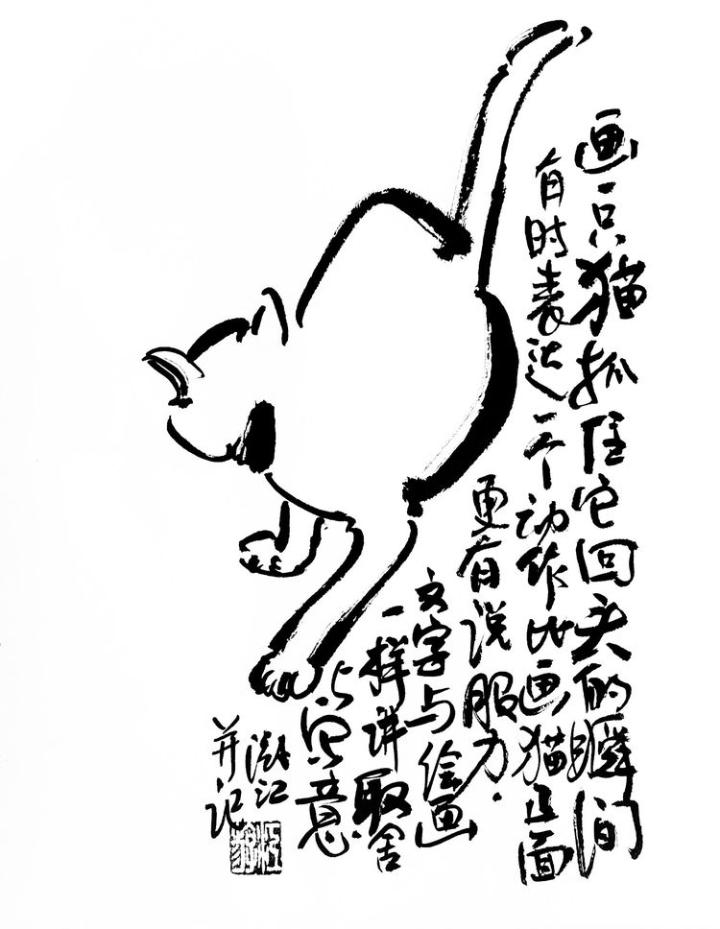 画一只猫抓住它回头的瞬间
有时表达一个动作比画猫正面
更有说服力.
文字与绘画
一样讲取舍
与写意
江
并记